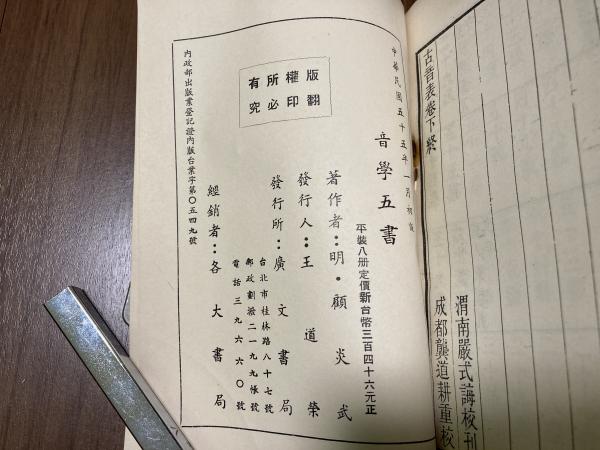 古音表卷下終
渭南嚴式誨校刊
成都龔道耕重校
中華民國五十五年一月初版
音學五書
平裝八册定價新台幣三百四十六元正
著作者：明・顧炎武
發行人：王道榮
發行所：廣文書局
台北市桂林路八十七號
郵政劃撥二一九九帳號
電話三九六六〇號
經銷者：各大書局
版權所有
翻印必究
內政部出版業登記證內版台業字第〇五四九號